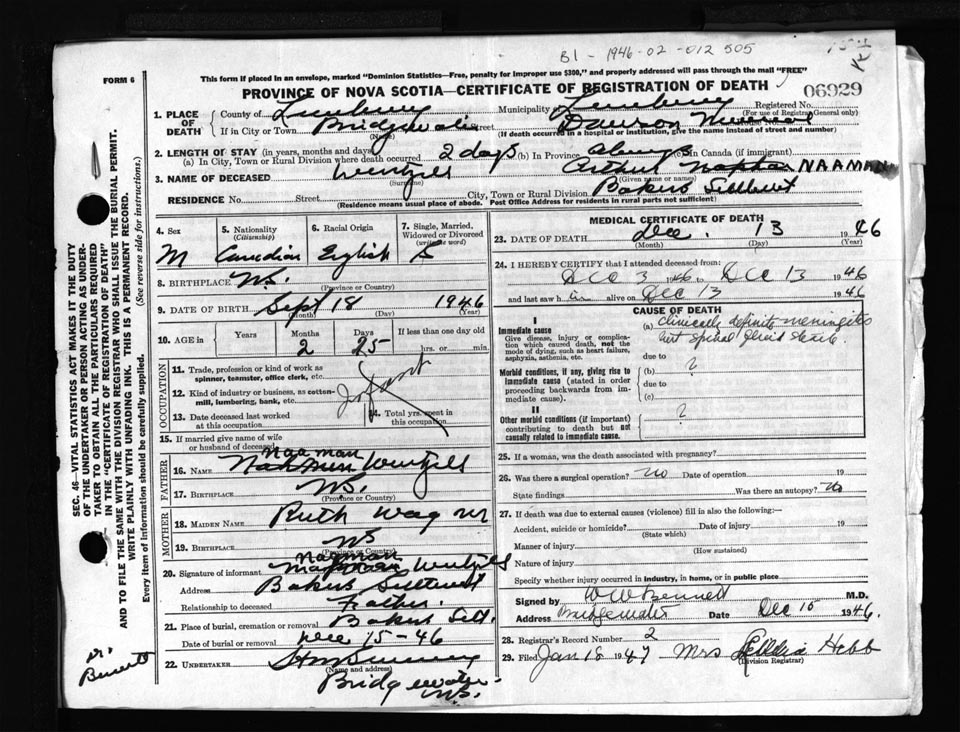 B1 - 1946-02-012505
FORM 6
This form if placed in an envelope, marked "Dominion Statistics—Free, penalty for improper use $300," and properly addressed will pass through the mail "FREE"
PROVINCE OF NOVA SCOTIA—CERTIFICATE OF REGISTRATION OF DEATH
06929
1. PLACE OF DEATH
County of Lunenburg Municipality of Lunenburg Registered No.
(For use of Registrar General only)
If in City or Town Bridgewater Street Dawson Memorial House No.
(Name) (If death occurred in a hospital or institution, give the name instead of street and number)
2. LENGTH OF STAY (in years, months and days)
(a) In City, Town or Rural Division where death occurred 2 days (b) In Province always (c) in Canada (if immigrant)
3. NAME OF DECEASED Wentzell Arthur NAAMAN
(Surname) (Given name or names)
RESIDENCE No. Street City, Town or Rural Division Bakers Settlement
(Residence means usual place of abode. Post Office Address for residents in rural parts not sufficient)
4. Sex M
5. Nationality (Citizenship) Canadian
6. Racial Origin English
7. Single, Married, Widowed or Divorced (write the word) S
8. BIRTHPLACE N.S.
(Province or Country)
9. DATE OF BIRTH Sept 18 1946
(Month) (Day) (Year)
10. AGE in Years Months 2 Days 25 If less than one day old hrs. or min.
OCCUPATION
11. Trade, profession or kind of work as spinner, teamster, office clerk, etc.
12. Kind of industry or business, as cotton-mill, lumbering, bank, etc. Infant
13. Date deceased last worked at this occupation
14. Total yrs. spent in this occupation
15. If married give name of wife or husband of deceased
FATHER
Naaman
16. NAME Wentzell
17. BIRTHPLACE N.S.
(Province or Country)
MOTHER
18. MAIDEN NAME Ruth Wagner
19. BIRTHPLACE N.S.
(Province or Country)
Naaman
20. Signature of informant Wentzell
Address Bakers Settlement
Relationship to deceased Father.
21. Place of burial, cremation or removal Bakers Sett.
Date of burial or removal Dec 15-46
22. UNDERTAKER
(Name and address)
Bridgewater N.S.
MEDICAL CERTIFICATE OF DEATH
23. DATE OF DEATH Dec. 13 1946
(Month) (Day) (Year)
24. I HEREBY CERTIFY that I attended deceased from:
Dec 3 1946 to Dec 13 1946
and last saw h im alive on Dec 13 1946
CAUSE OF DEATH
I
Immediate cause
Give disease, injury or complication which caused death, not the mode of dying, such as heart failure, asphyxia, asthenia, etc.
(a) clinically definite meningitis
but spinal fluid sterile.
due to
Morbid conditions, if any, giving rise to immediate cause (stated in order proceeding backwards from immediate cause).
(b) ?
due to
(c)
II
Other morbid conditions (if important) contributing to death but not causally related to immediate cause.
?
25. If a woman, was the death associated with pregnancy?
26. Was there a surgical operation? no Date of operation 19
State findings Was there an autopsy? No
27. If death was due to external causes (violence) fill in also the following:—
Accident, suicide or homicide? Date of injury 19
(State which)
Manner of injury
(How sustained)
Nature of injury
Specify whether injury occurred in industry, in home, or in public place
Signed by W W Bennett M.D.
Address Bridgewater Date Dec 15 1946.
28. Registrar's Record Number 2
29. Filed Jan 18 1947 Mrs Hebb
(Division Registrar)
SEC. 46—VITAL STATISTICS ACT MAKES IT THE DUTY
OF THE UNDERTAKER OR PERSON ACTING AS UNDER-
TAKER TO OBTAIN ALL THE PARTICULARS REQUIRED
IN THE "CERTIFICATE OF REGISTRATION OF DEATH"
AND TO FILE THE SAME WITH THE DIVISION REGISTRAR WHO SHALL ISSUE THE BURIAL PERMIT.
WRITE PLAINLY WITH UNFADING INK. THIS IS A PERMANENT RECORD.
Every item of information should be carefully supplied. (See reverse side for instructions.)
Dr. Bennett